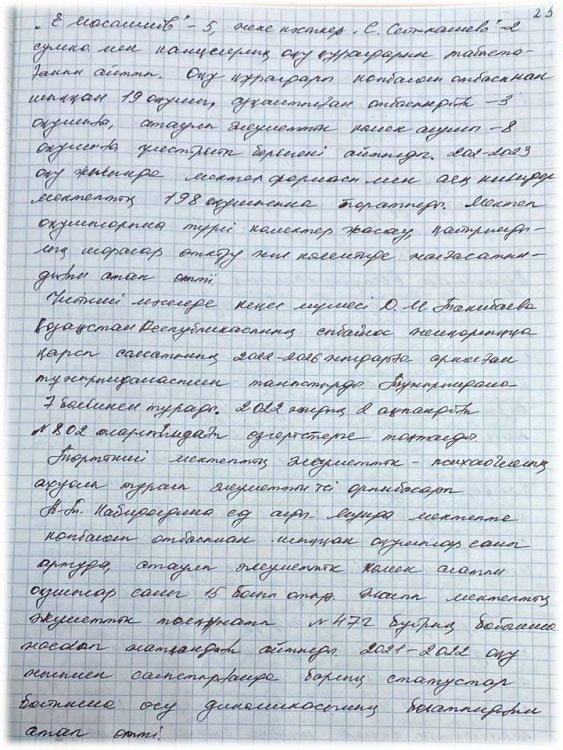 25
„Е Масалимов" - 5, жеке кәсіпкер „С. Сейткалиев" - 2
сумка мен канцелярлық оқу құралдарын табыста-
ғанын айтты. Оқу құралдары көпбалалы отбасынан
шыққан 19 оқушы, отбасындағы - 3
оқушыға, атаулы әлеуметтік көмек алушы - 8
оқушыға үлестіріліп берілгені айтылды. 2022-2023
оқу жылында мектеп формасы мен аяқ киімдер
мектептің 198 оқушысына таратылды. Мектеп
оқушыларына түрлі көмектер жасау, қайырымды-
лық шаралар өткізу жыл көлемінде жалғасатын-
дығын атап өтті.
Үшінші мәселеде кеңес мүшесі Д. М. Танибаева
Қазақстан Республикасының сыбайлас жемқорлыққа
қарсы саясатының 2022-2026 жылдарға арналған
тұжырымдамасымен таныстырды. Тұжырымдама
7 бөлімнен тұрады. 2022 жылғы 2 ақпандағы
№ 802 жарлығындағы өзгертстерге тоқталды
Төртінші мектептің әлеуметтік - психологиялық
ахуалы туралы әлеуметтік ісі орынбасары
сөз алды. Мұнда мектепте
көпбалалы отбасынан шыққан оқушылар саны
артуда, атаулы әлеуметтік көмек алатын
оқушылар саны 15 болып отыр. Жалпы мектептің
әлеуметтік төлқұжаты № 472 бұйрық бойынша
жасалып жатқандығы айтылды 2021-2022 оқу
жылымен салыстырғанда барлық статустар
бойынша өсу динамикасының болатындығын
атап өтті.